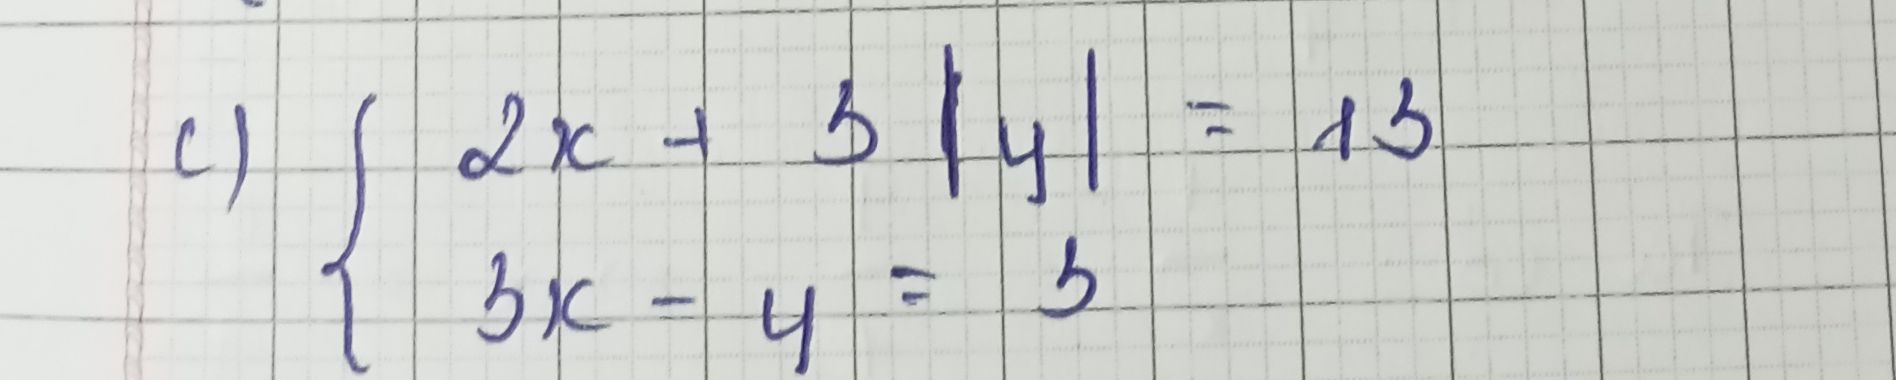 c) { 2x + 3 |y| = 13
3x - y = 3